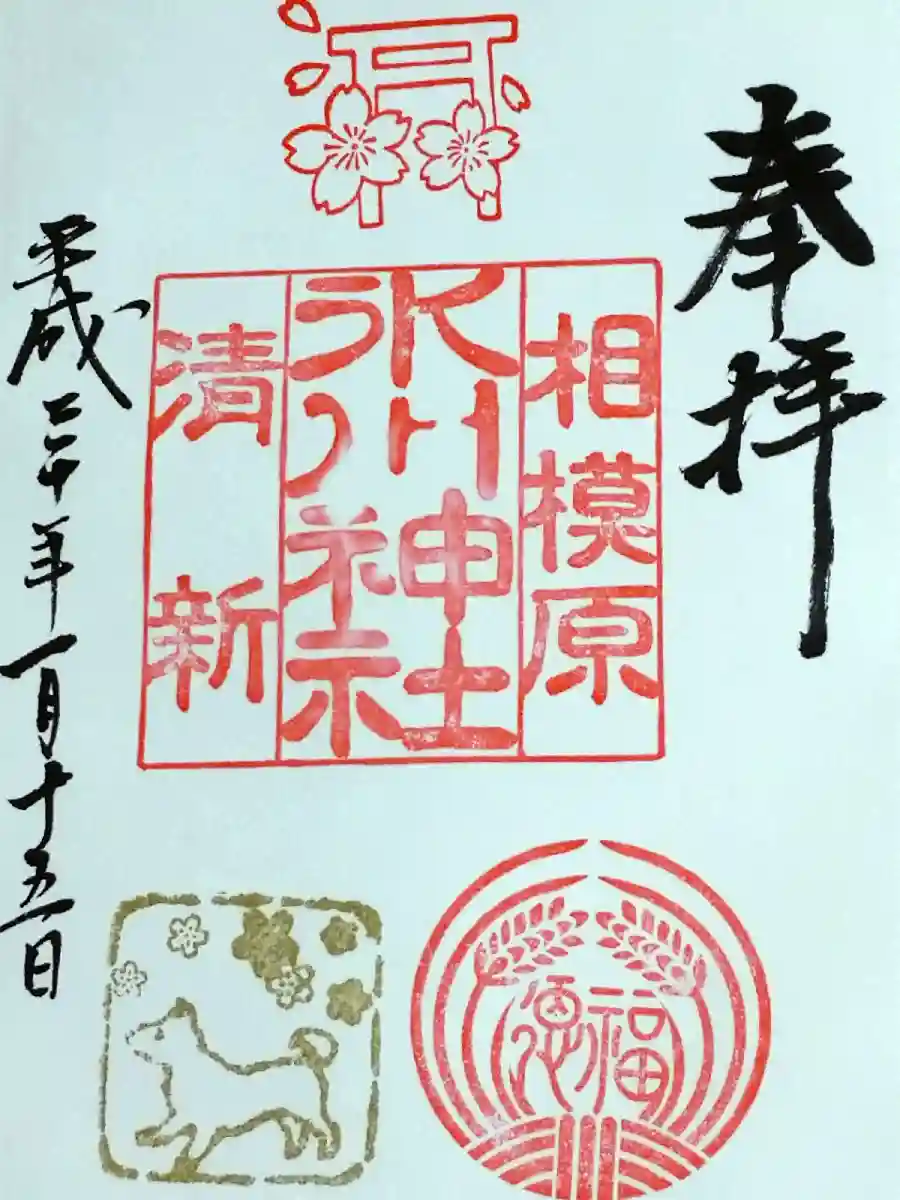 奉拝
相模原
氷川神社
清新
平成三十年一月十五日
福恩